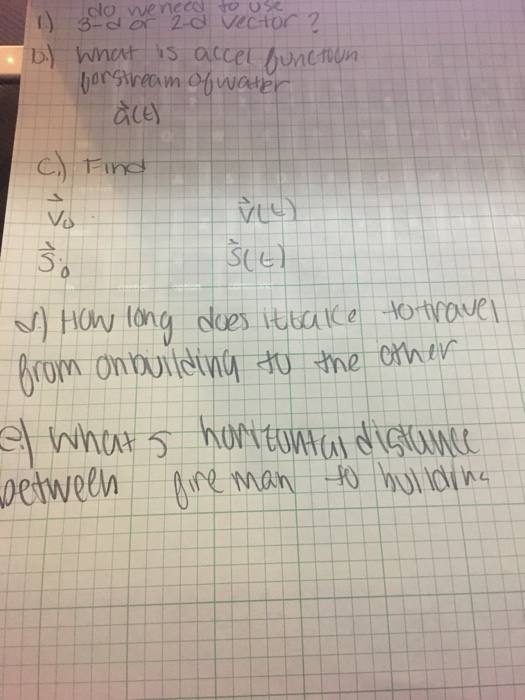 do we need to use
1.) 3-d or 2-d vector?
b.) what is accel function
for stream of water
a⃗(t)
C.) Find
v⃗₀ v⃗(t)
s⃗₀ s⃗(t)
d.) How long does it take to travel
from on building to the other
e.) what s horizontal distance
between fire man to building